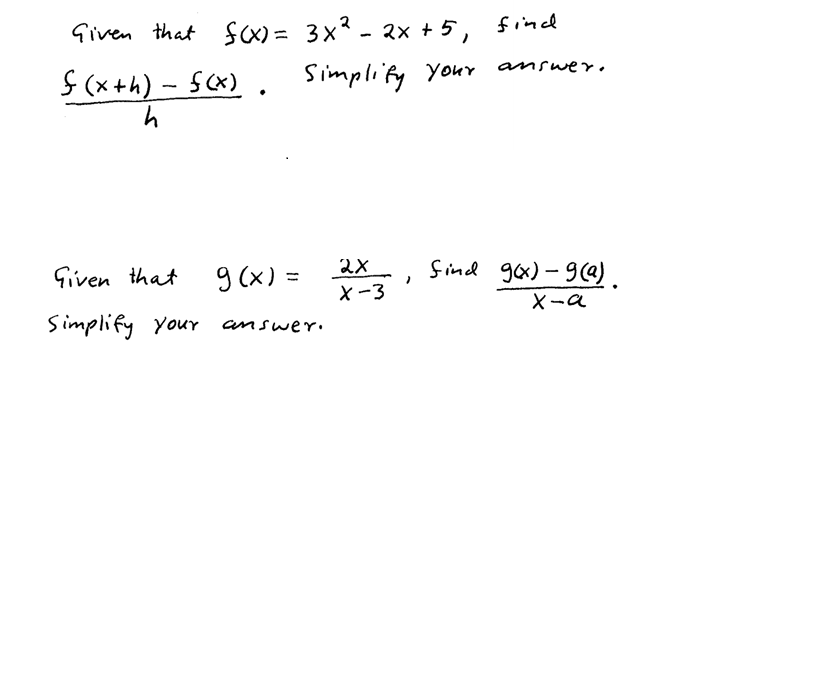 Given that f(x) = 3x² - 2x + 5, find
f(x+h) - f(x) / h . Simplify your answer.
Given that g(x) = 2x / x-3 , find g(x) - g(a) / x-a .
Simplify your answer.